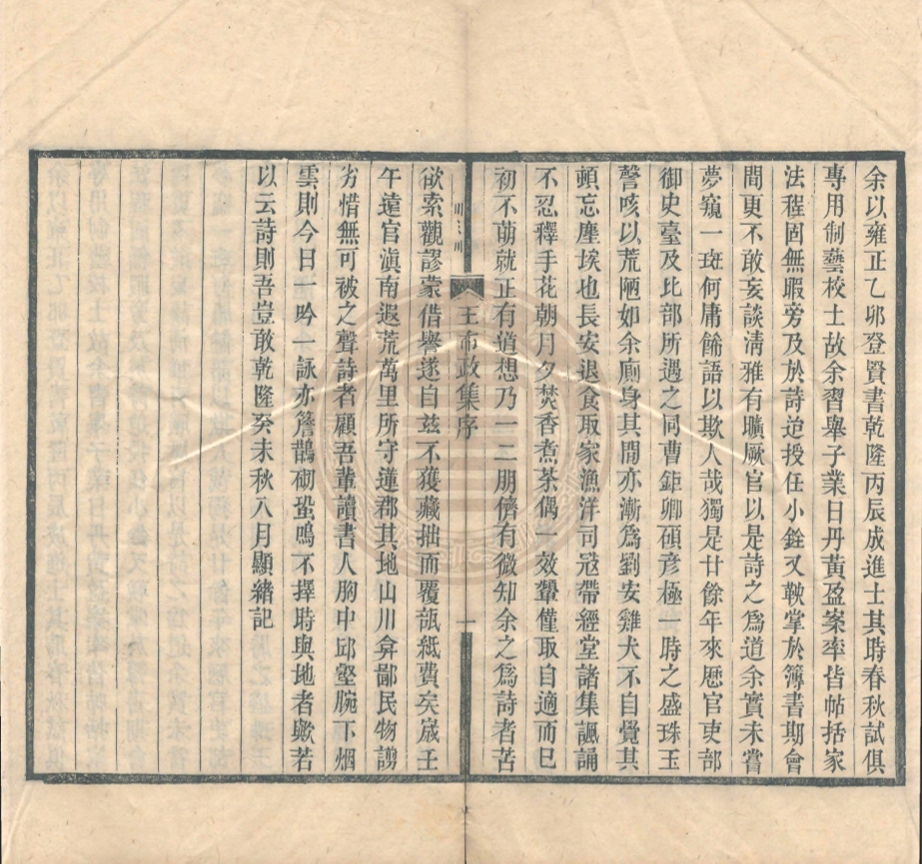 余以雍正乙卯登賢書乾隆丙辰成進士其時春秋試俱
專用制藝校士故余習舉子業日丹黃盈案率皆帖括家
法程固無暇旁及於詩迨授任小銓又鞅掌於簿書期會
間更不敢妄談淸雅有壙厥官以是詩之爲道余實未嘗
夢窺一斑何庸餙語以欺人哉獨是廿餘年來歴官吏部
御史臺及比部所遇之同曹鉅卿碩彥極一時之盛珠玉
謦咳以荒陋如余廁身其間亦漸爲劉安雞犬不自覺其
頓忘塵埃也長安退食取家漁洋司冦帶經堂諸集諷誦
不忍釋手花朝月夕焚香煮茶偶一效顰僅取自適而已
初不萌就正有道想乃一二朋儕有微知余之爲詩者苦
王布政集序
一
欲索觀謬蒙借譽遂自玆不獲藏拙而覆瓿紙費矣嵗壬
午逺官滇南遐荒萬里所守蓮郡其地山川弇鄙民物譾
劣惜無可被之聲詩者顧吾輩讀書人胸中邱壑腕下烟
雲則今日一吟一詠亦簷鵲砌蛩鳴不擇時與地者歟若
以云詩則吾豈敢乾隆癸未秋八月顯緒記